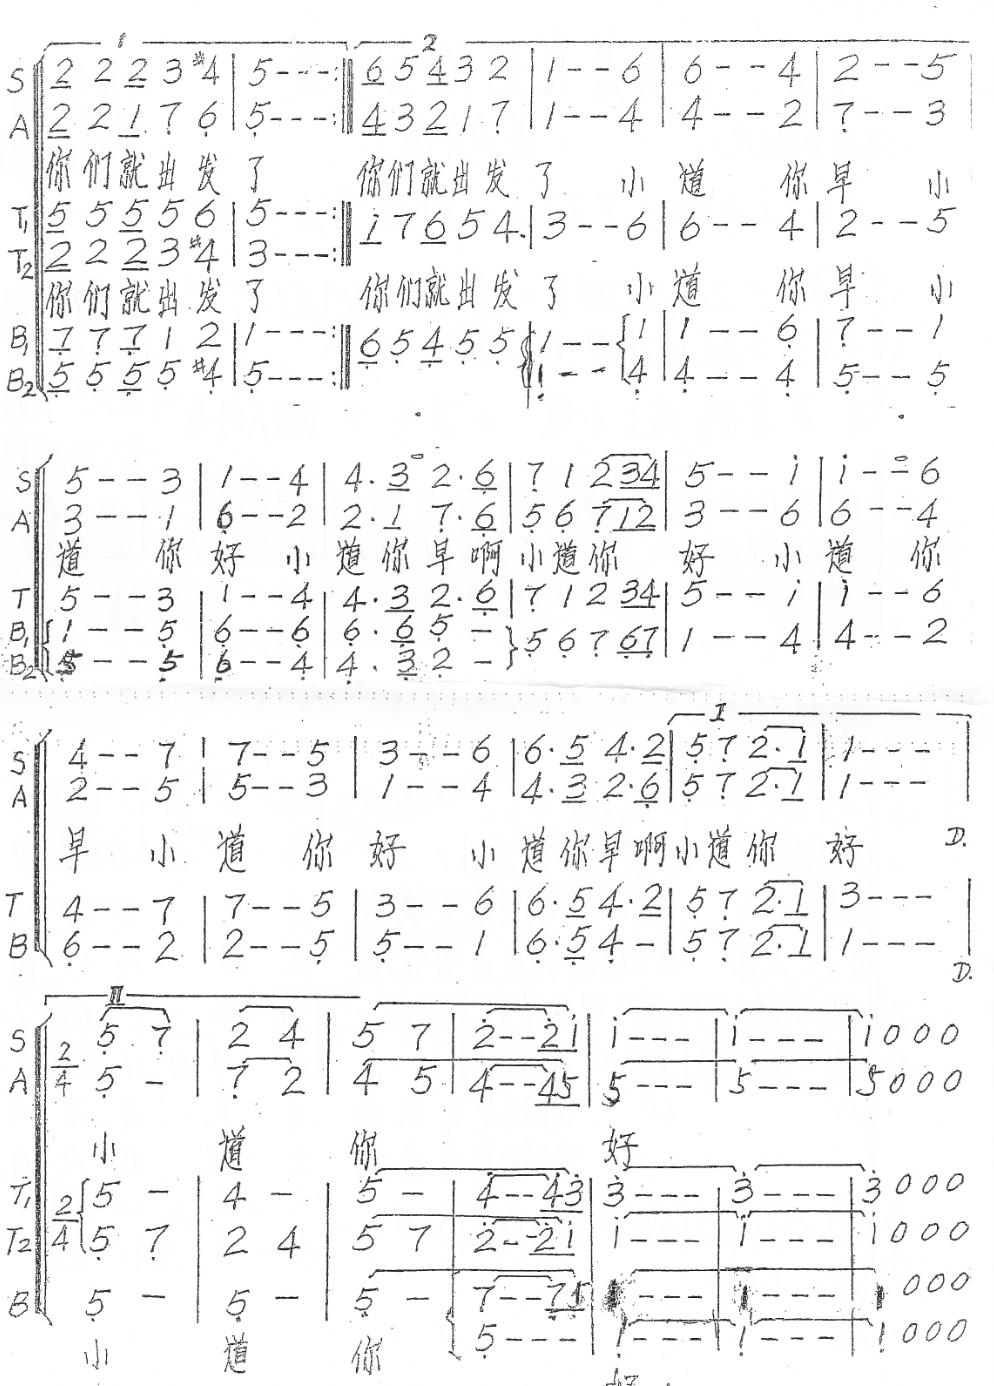 1 2
S 2 2 2 3 #4 | 5 - - - :|| 6 5 4 3 2 | 1 - - 6 | 6 - - 4 | 2 - - 5
A 2 2 1 7 6 | 5 - - - :|| 4 3 2 1 7 | 1 - - 4 | 4 - - 2 | 7 - - 3
你们就出发了 你们就出发了 小道 你早 小
T1 5 5 5 5 6 | 5 - - - :|| i 7 6 5 4. | 3 - - 6 | 6 - - 4 | 2 - - 5
T2 2 2 2 3 #4 | 3 - - - :||
你们就出发了 你们就出发了 小道 你早 小
B1 7 7 7 1 2 | 1 - - - :|| 6 5 4 5 5 | 1 - - 1 | 1 - - 6 | 7 - - 1
B2 5 5 5 5 #4 | 5 - - - :|| 1 - - 4 | 4 - - 4 | 5 - - 5
S 5 - - 3 | 1 - - 4 | 4 · 3 2 · 6 | 7 1 2 3 4 | 5 - - i | i - - 6
A 3 - - 1 | 6 - - 2 | 2 · 1 7 · 6 | 5 6 7 1 2 | 3 - - 6 | 6 - - 4
道 你好 小道你早啊小道你 好 小道 你
T 5 - - 3 | 1 - - 4 | 4 · 3 2 · 6 | 7 1 2 3 4 | 5 - - i | i - - 6
B1 1 - - 5 | 6 - - 6 | 6 · 6 5 - | 5 6 7 6 7 | 1 - - 4 | 4 - - 2
B2 5 - - 5 | 6 - - 4 | 4 . 3 2 -
I
S 4 - - 7 | 7 - - 5 | 3 - - 6 | 6 · 5 4 · 2 | 5 7 2 · 1 | 1 - - -
A 2 - - 5 | 5 - - 3 | 1 - - 4 | 4 · 3 2 · 6 | 5 7 2 · 1 | 1 - - -
早 小道 你好 小道你早啊小道你 好 D.
T 4 - - 7 | 7 - - 5 | 3 - - 6 | 6 · 5 4 · 2 | 5 7 2 · 1 | 3 - - -
B 6 - - 2 | 2 - - 5 | 5 - - 1 | 6 · 5 4 - | 5 7 2 · 1 | 1 - - -
D.
II
S 2/4 5 7 | 2 4 | 5 7 | 2 - - 2 i | i - - - | i - - - | i 0 0 0
A 5 - | 7 2 | 4 5 | 4 - - 4 5 | 5 - - - | 5 - - - | 5 0 0 0
小 道 你 好
T1 2/4 5 - | 4 - | 5 - | 4 - - 4 3 | 3 - - - | 3 - - - | 3 0 0 0
T2 5 7 | 2 4 | 5 7 | 2 - - 2 i | i - - - | i - - - | i 0 0 0
B 5 - | 5 - | 5 - | 7 - - 7 5 | - - - | - - - | 0 0 0
5 - - - | 1 - - - | 1 - - - | 1 0 0 0
小 道 你
好